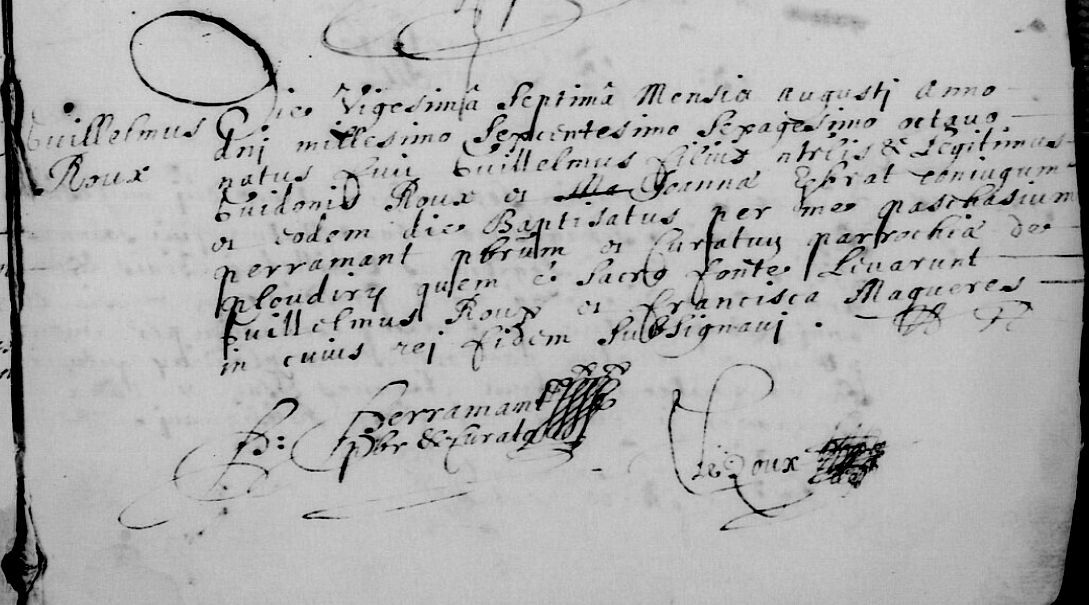 Guillelmus
Roux
Die Vigesimâ Septimâ Mensis augustj anno
dnj millesimo Sexcentesimo Sexagesimo octavo
natus fuit Guillelmus filius ntrlis & Legitimus
Guidonis Roux et Joannæ Ebrat coniugum
et eodem die Baptisatus per me paschasium
perramant pbrum et Curatum parrochiæ de
ploudiry quem è Sacro fonte Livarunt
Guillelmus Roux et francisca Magueres
in cuius rej fidem Subsignavj .
P: Perramant
Pbr & Curatq
Le Roux